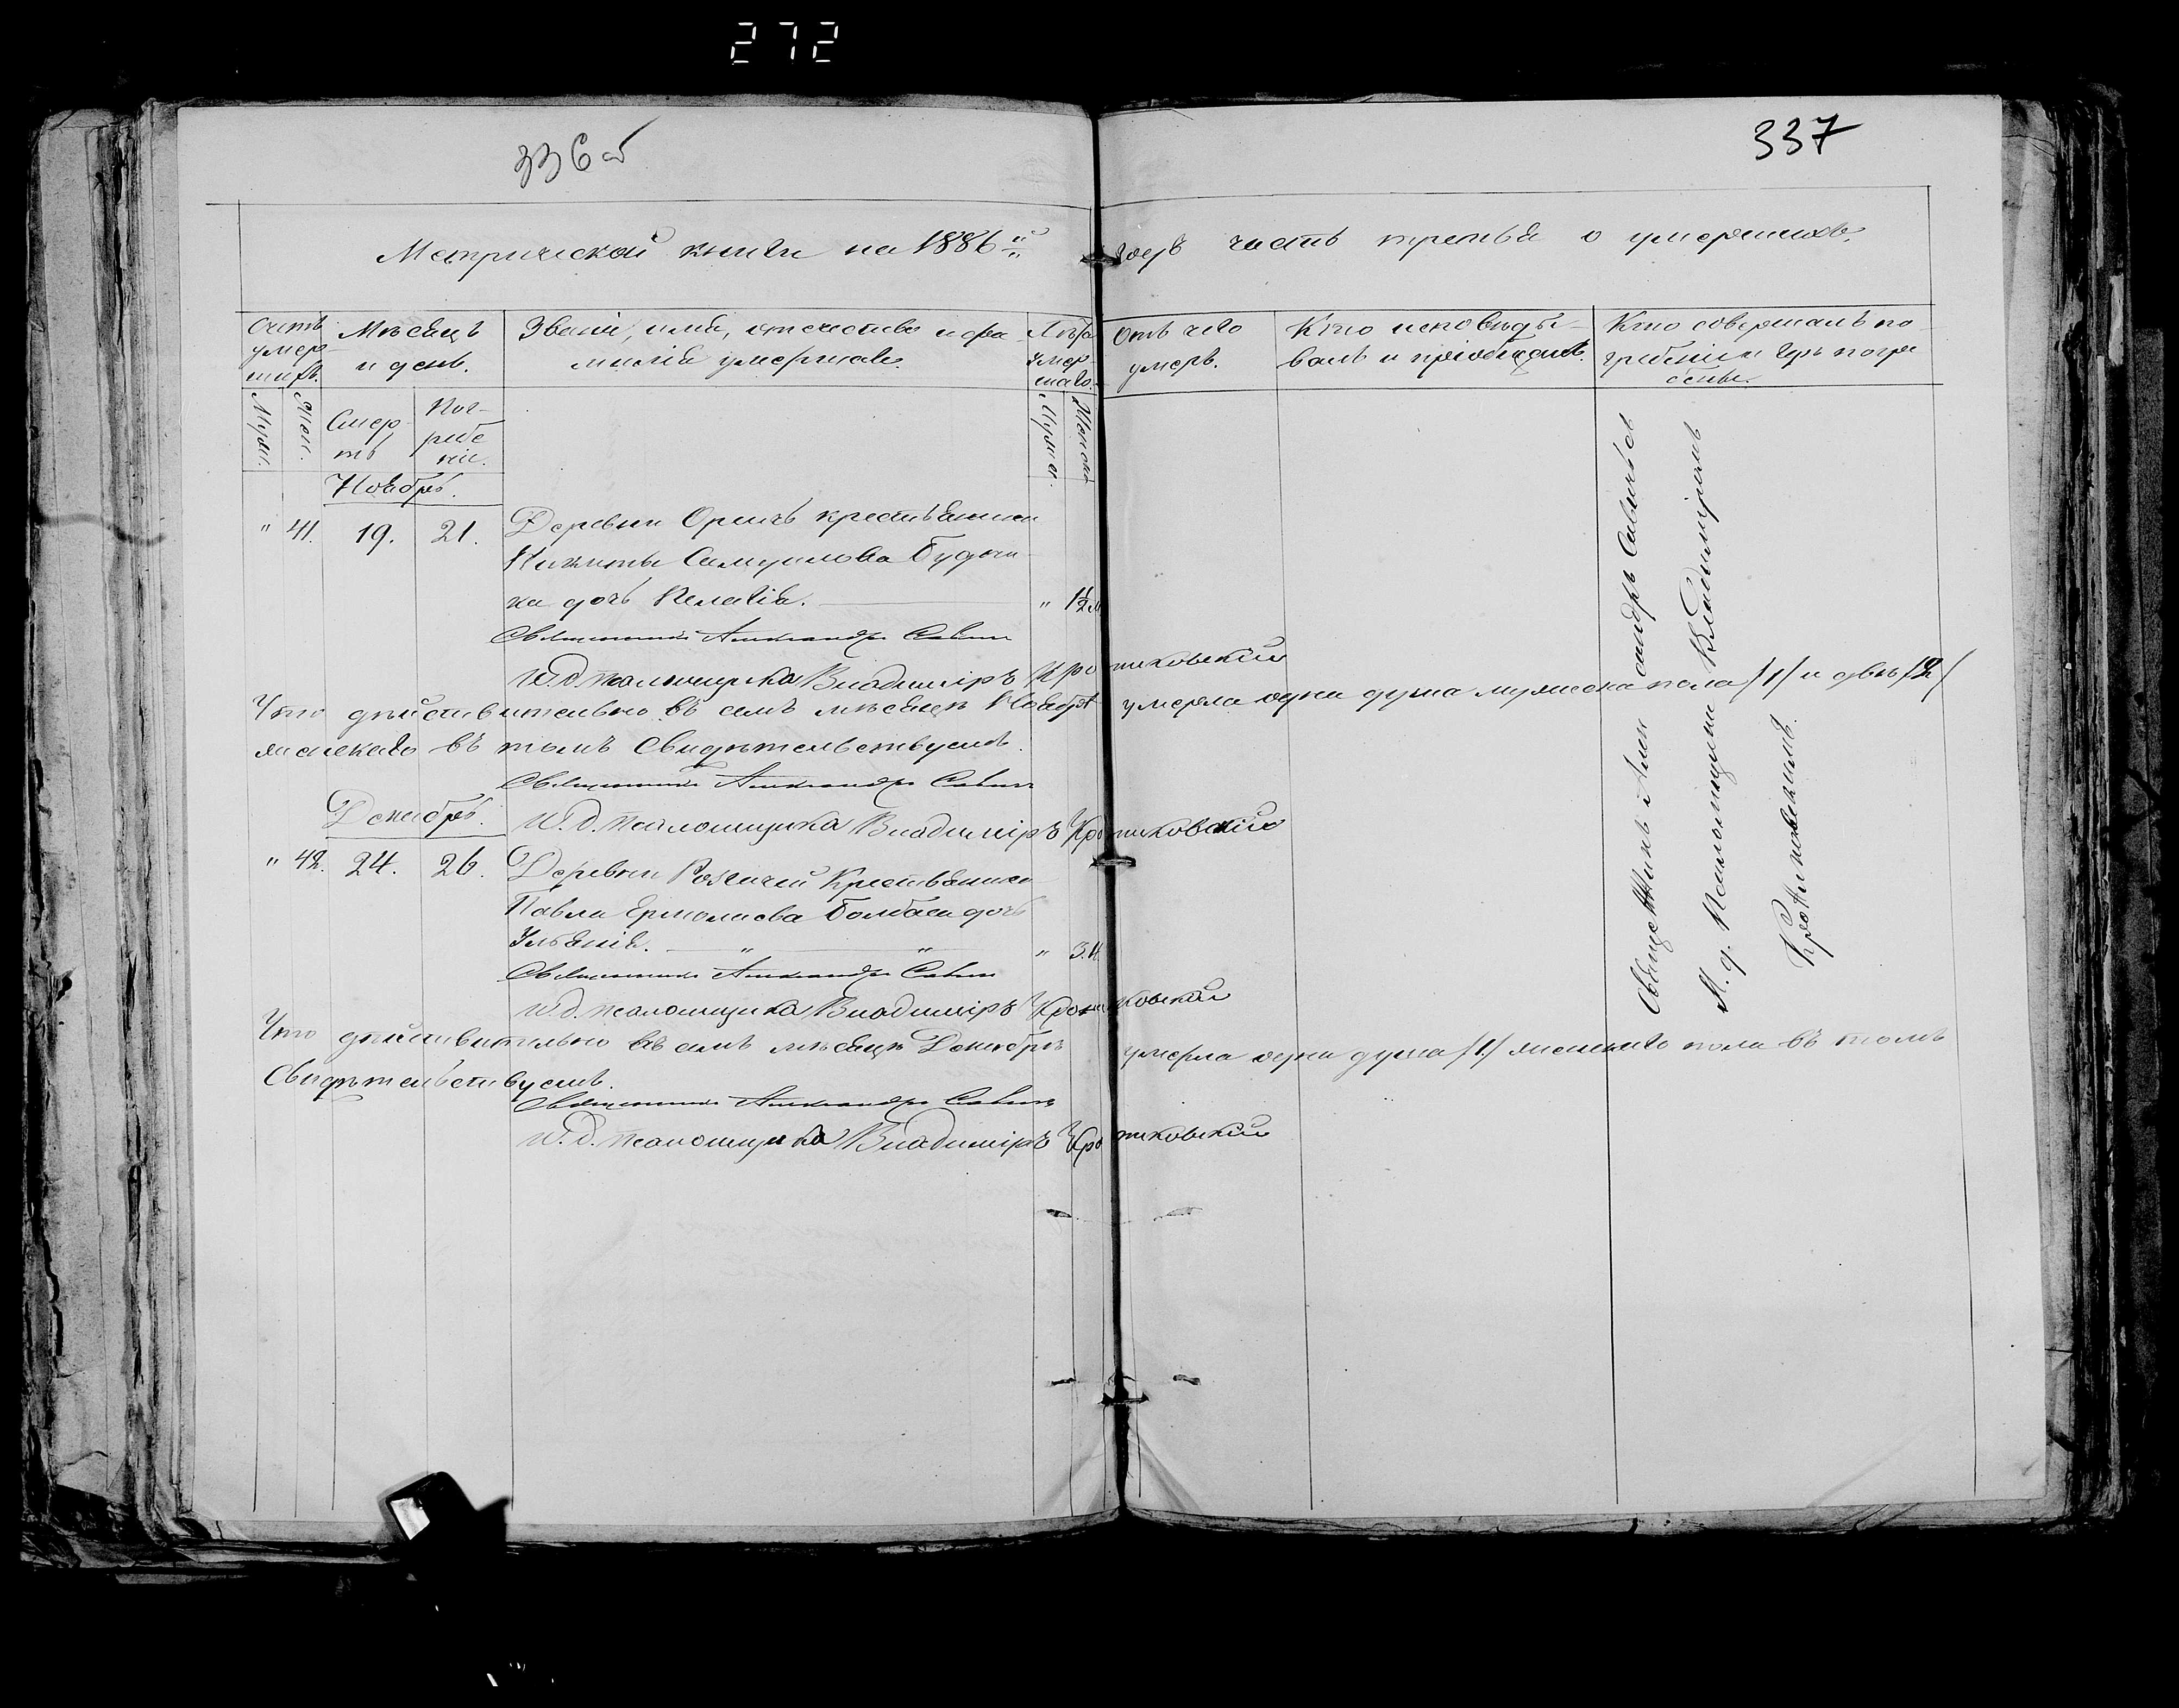 272
336 об
337
Метрической книги на 1886й годъ часть третья о умершихъ.
Счетъ умер-шихъ.
Мѣсяцъ и день.
Званіе, имя, отечество и фа-
милія умершаго.
Лѣта Умер-шаго.
Отъ чего умеръ.
Кто исповѣды-
валъ и пріобщалъ
Кто совершалъ по-
гребеніе и гдѣ погре-
бены.
Муж. Жен.
Смер-ть
Пог-ребе-ніе.
Мужска. Женска
Ноябрь.
" 41. 19. 21. Деревни Оричъ крестьянина
Никиты Самуилова Будни-
ка дочь Пелагія. " 1½ м
Священникъ Александръ Савичъ
И.д. псаломщика Владиміръ Кротиковскій
Что дѣйствительно въ семъ мѣсяцѣ Ноябрѣ умерла одна душа мужска пола /1/ и двѣ /2/
женскаго въ томъ Свидѣтельствуемъ.
Священникъ Александръ Савичъ
И.д. псаломщика Владиміръ Кротиковскій
Декабрь.
" 42. 24. 26. Деревни Крестьянина
Павла Ермолаева Болбаса дочь
Ульянія. " " " 3. н.
Священникъ Александръ Савичъ
И.д. псаломщика Владиміръ Кротиковскій
Что дѣйствительно въ семъ мѣсяцѣ Декабрѣ умерла одна душа /1/ женскаго пола въ томъ
Свидѣтельствуемъ.
Священникъ Александръ Савичъ
И.д. псаломщика Владиміръ Кротиковскій
Священникъ Александръ Савичъ съ
И. д. Псаломщика Владиміромъ
Кротиковскимъ.